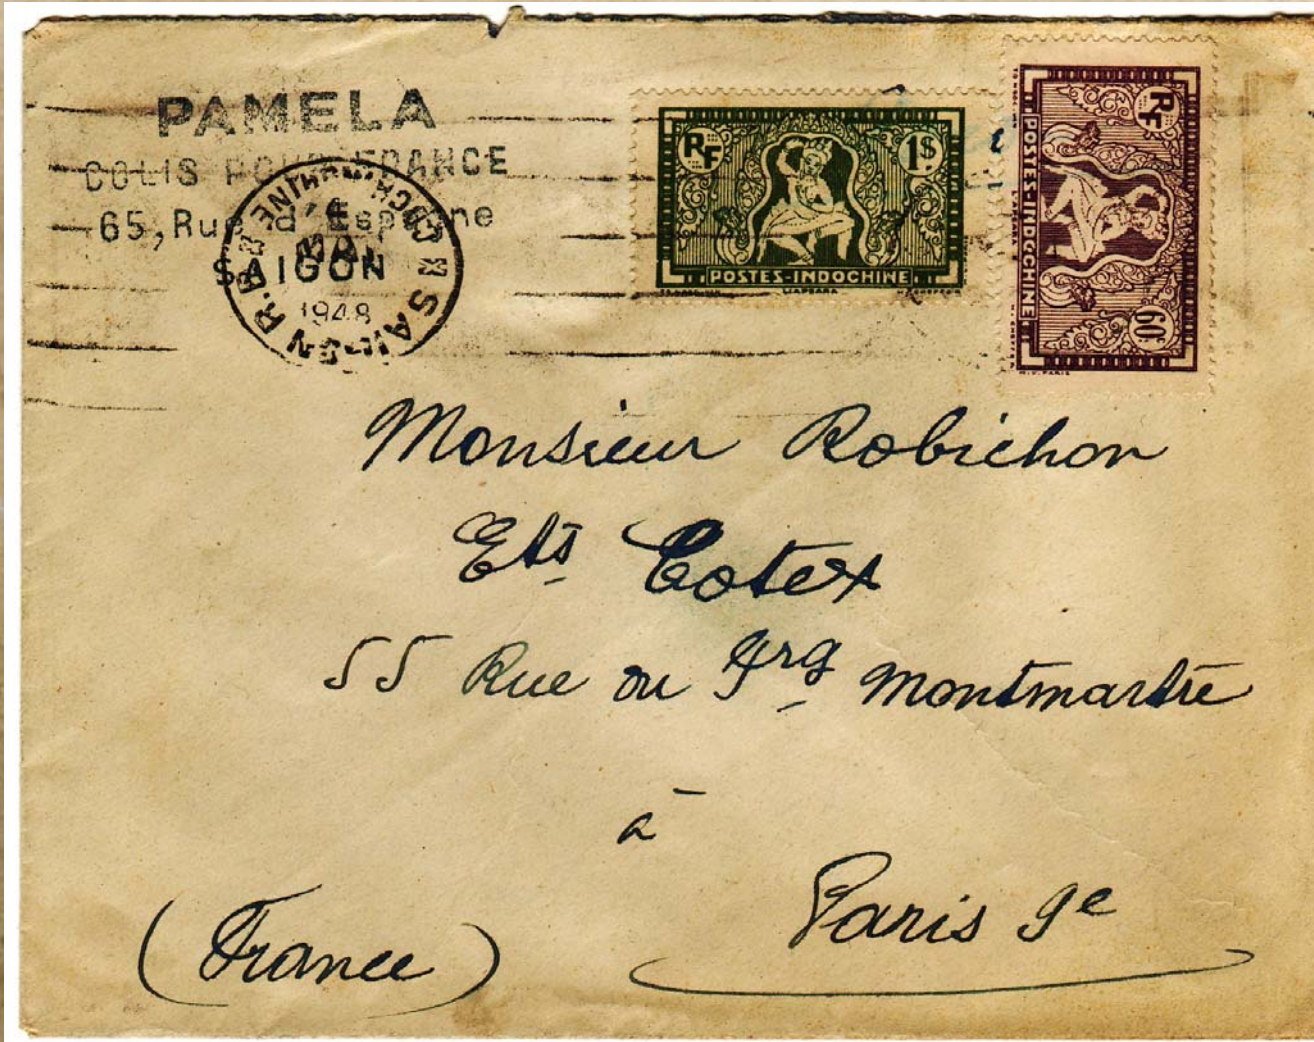 PAMELA
COLIS POUR FRANCE
65, Rue d'Espagne
SAIGON
SAIGON R.P. COCHINCHINE
MAI
1948
RF 1$
POSTES-INDOCHINE
RF 60c
POSTES-INDOCHINE
Monsieur Robichon
Ets Cotex
55 Rue du Fbrg Montmartre
à
Paris 9e
(France)